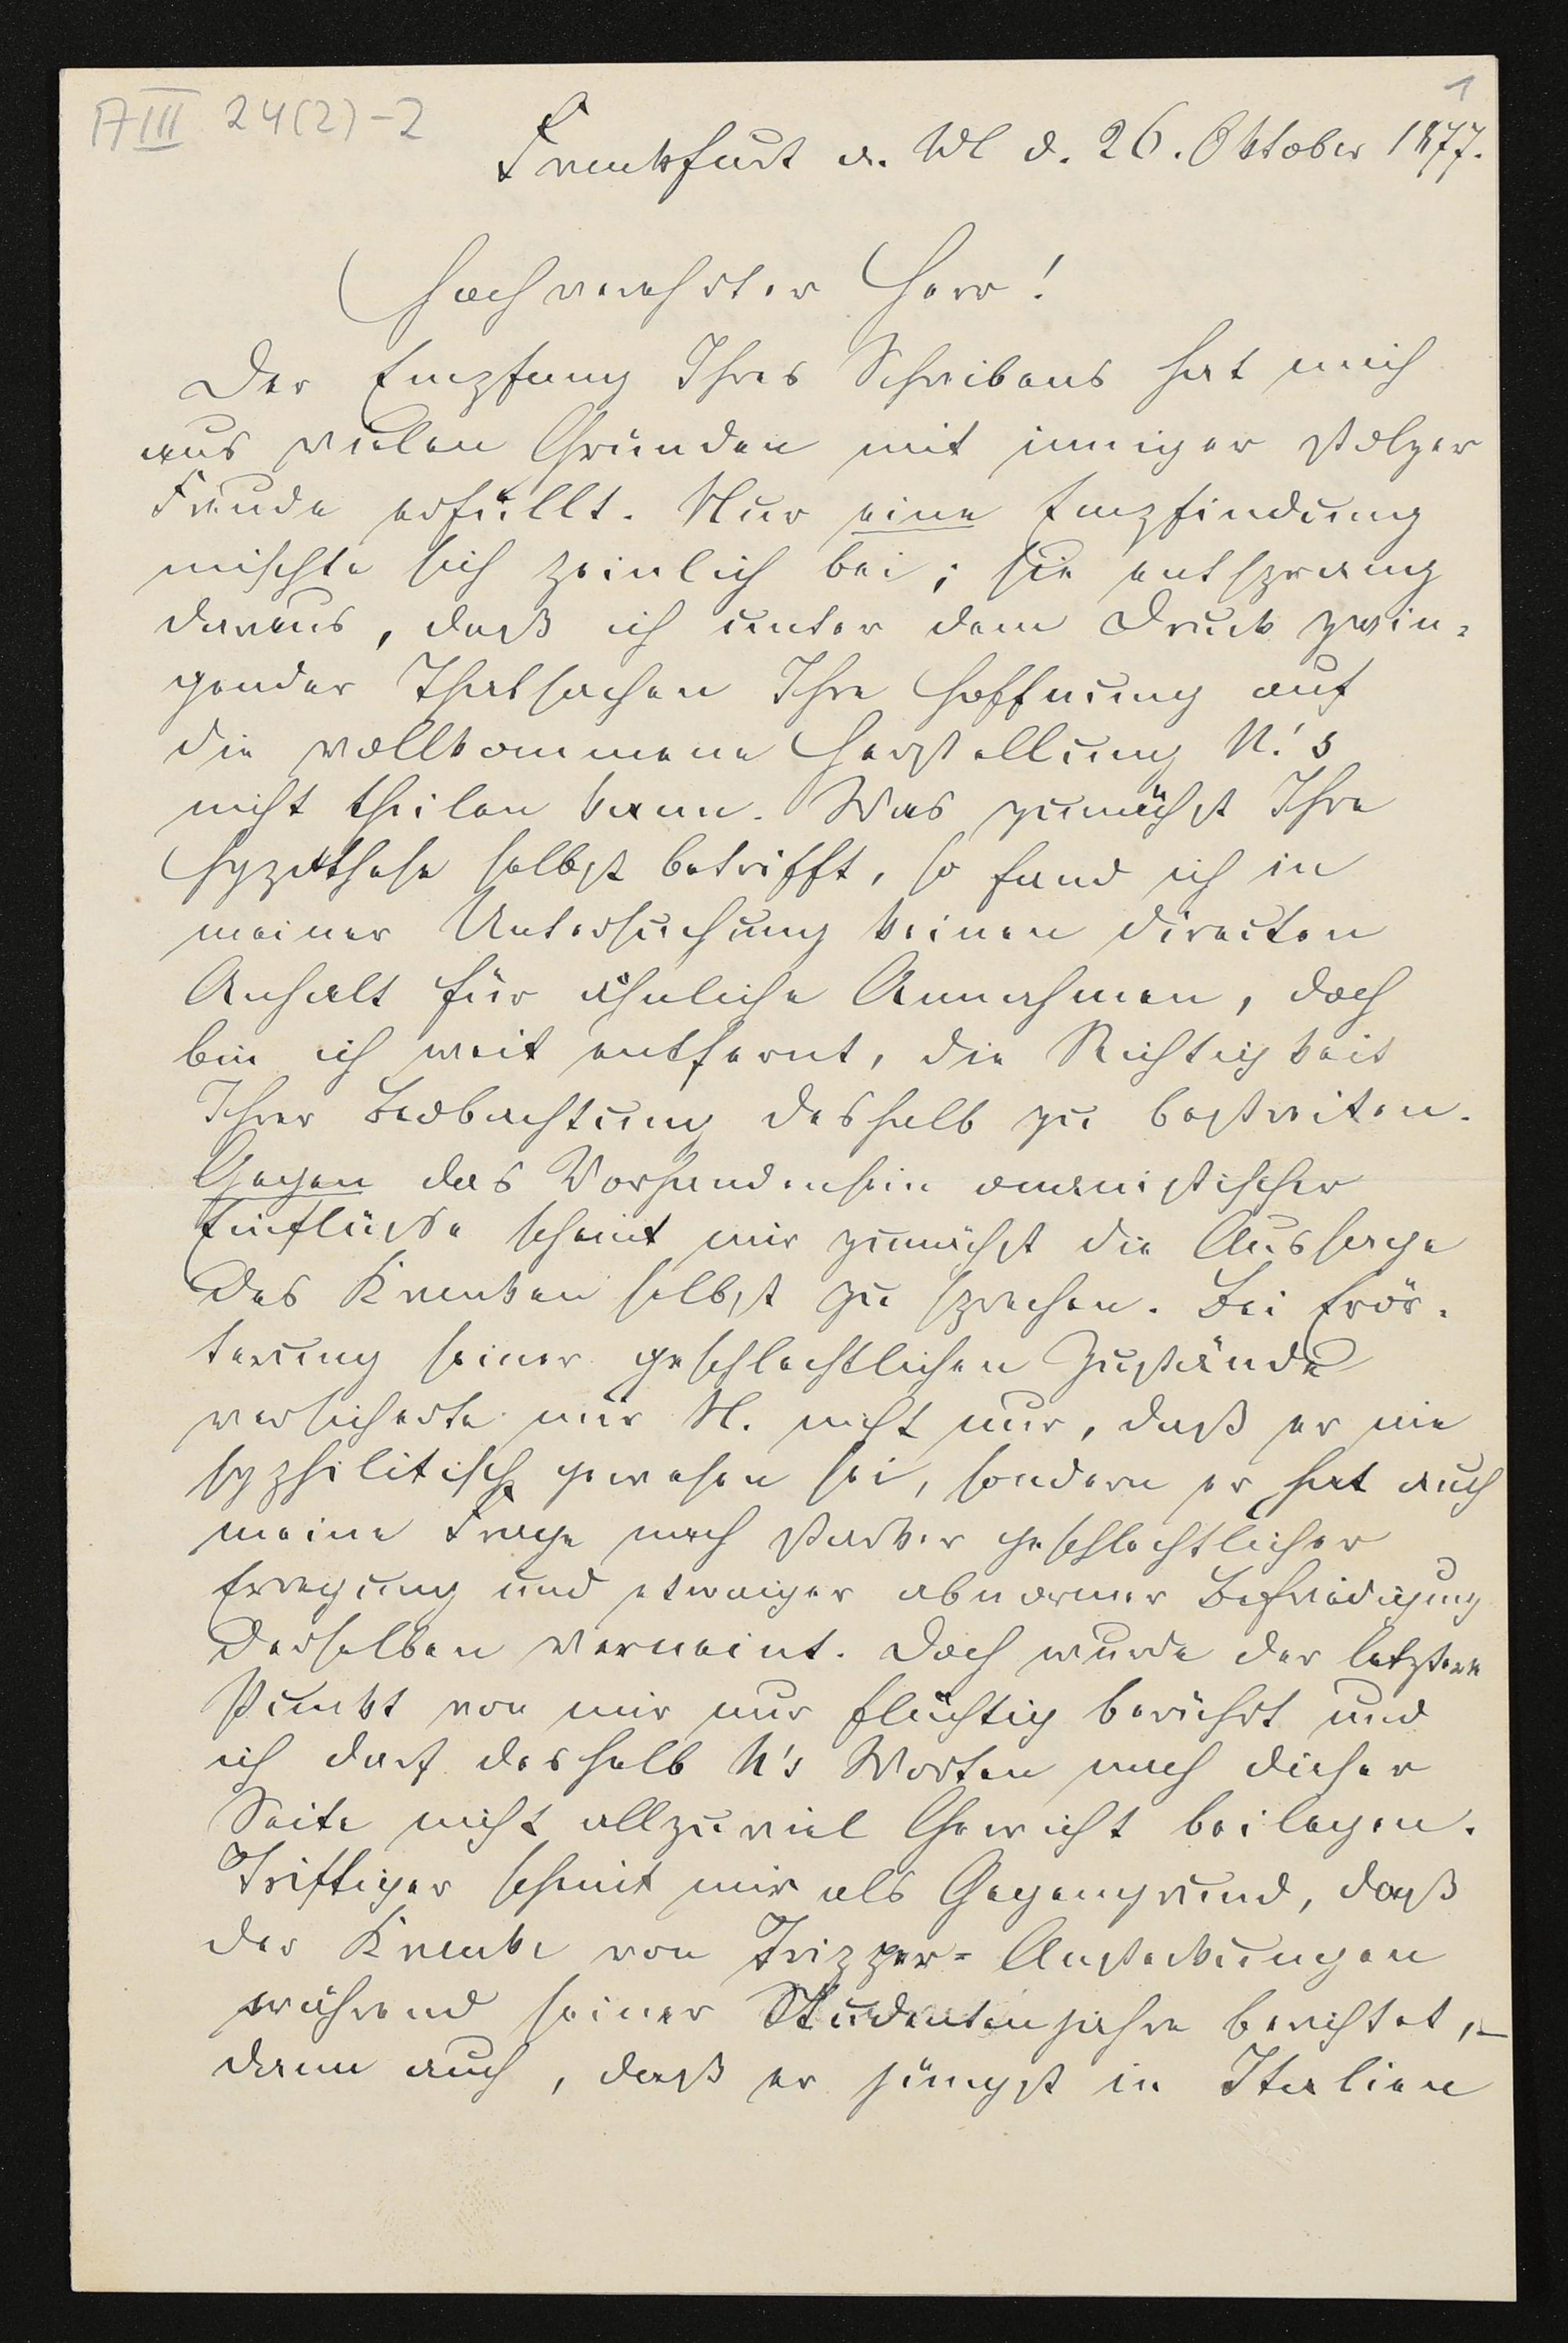 A III 24(2)-2
1
Frankfurt a. M d. 26. Oktober 1877.
Hochverehrter Herr!
Der Empfang Ihres Schreibens hat mich
aus vielen Gründen mit inniger stolzer
Freude erfüllt. Nur eine Empfindung
mischte sich peinlich bei; sie entsprang
daraus, daß ich unter dem Druck zwin-
gender Thatsachen Ihre Hoffnung auf
die vollkommene Herstellung N.'s
nicht theilen kann. Was zunächst Ihre
Hypothese selbst betrifft, so fand ich in
meiner Untersuchung keinen directen
Anhalt für ähnliche Annahmen, doch
bin ich weit entfernt, die Richtigkeit
Ihrer Beobachtung deshalb zu bestreiten.
Gegen das Vorhandensein onanistischer
Einflüsse scheint mir zunächst die Aussage
des Kranken selbst zu sprechen. Bei Erör-
terung seiner geschlechtlichen Zustände
versicherte mir N. nicht nur, daß er nie
syphilitisch gewesen sei, sondern er hat auch
meine Frage nach starker geschlechtlicher
Erregung und etwaiger abnormer Befriedigung
derselben verneint. Doch wurde der letztere
Punkt von mir nur flüchtig berührt und
ich darf deshalb N's Worten nach dieser
Seite nicht allzuviel Gewicht beilegen.
Triftiger scheint mir als Gegengrund, daß
der Kranke von Tripper-Ansteckungen
während seiner Studentenjahre berichtet, –
dann auch, daß er jüngst in Italien